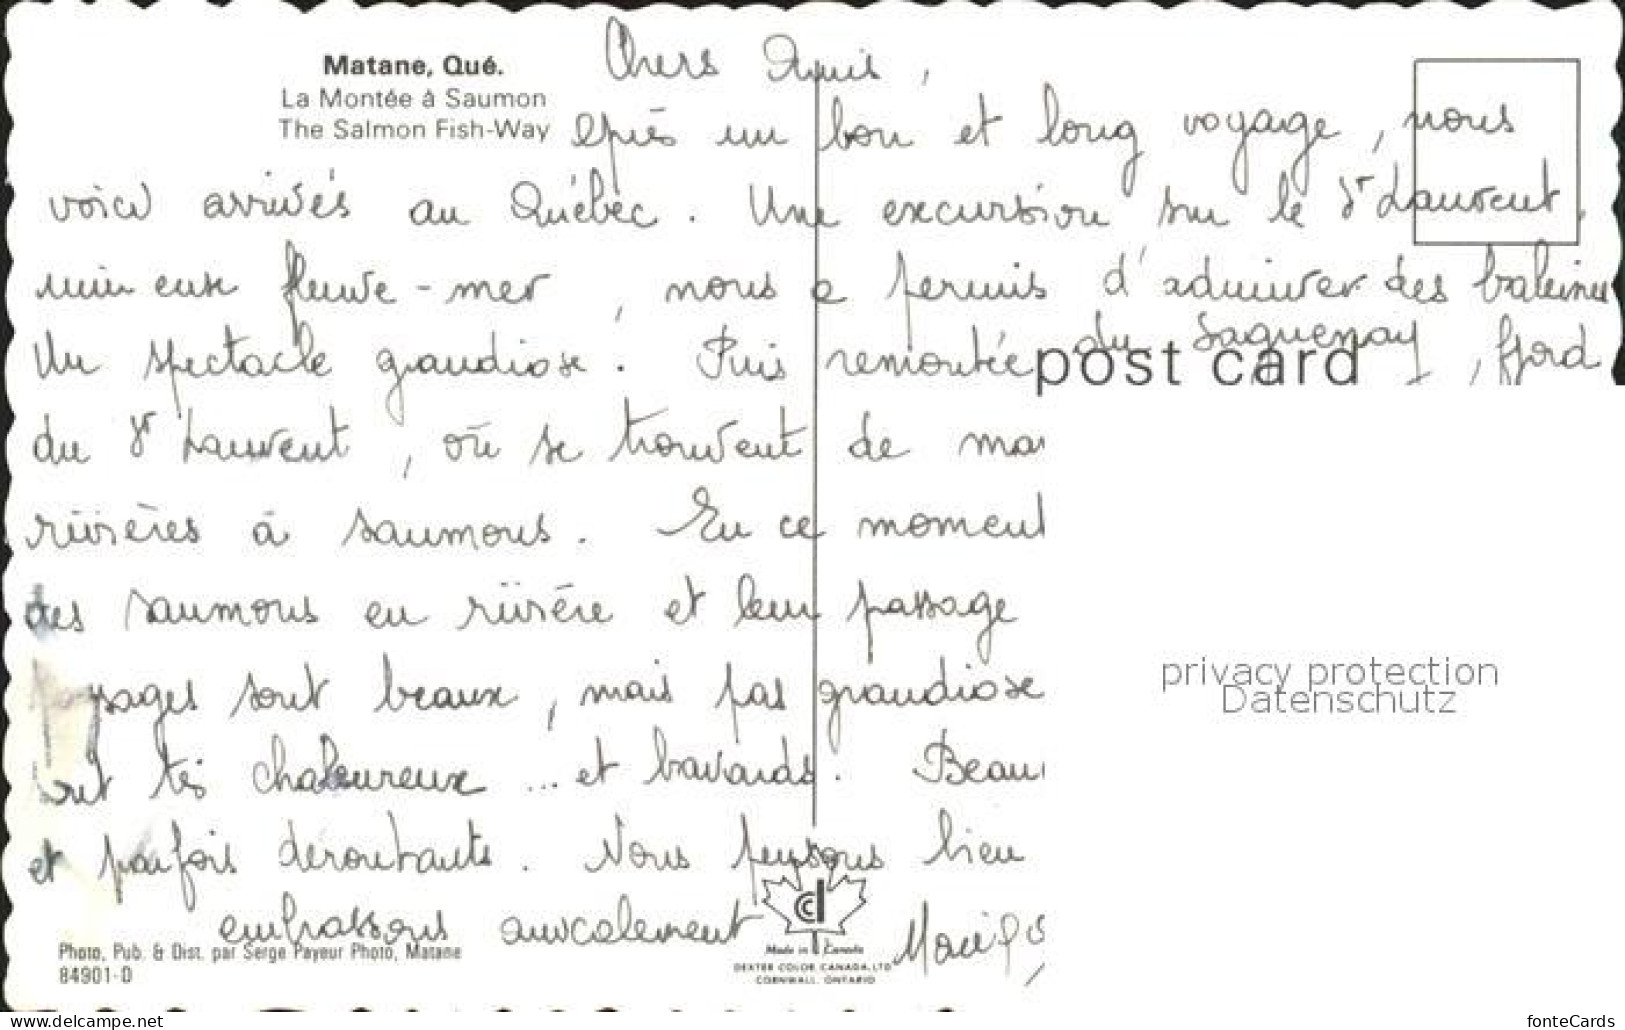 Matane, Qué.
La Montée à Saumon
The Salmon Fish-Way
Chers Amis,
Après un bon et long voyage, nous
voici arrivés au Québec. Une excursion sur le St Laurent,
immense fleuve-mer, nous a permis d'admirer des baleines
Un spectacle grandiose. Puis remontée du Saguenay, fjord
post card
du St Laurent, où se trouvent de
rivières à saumons. En ce moment
des saumons en rivière et leur passage
paysages sont beaux, mais pas grandiose
ont très chaleureux ... et bavards. Beau
et parfois déroutants. Nous pensons bien
embrassons amicalement
privacy protection
Datenschutz
Photo, Pub. & Dist. par Serge Payeur Photo, Matane
84901-D
Made in Canada
DEXTER COLOR CANADA, LTD
CORNWALL, ONTARIO
https://www.delcampe.net
fonteCards